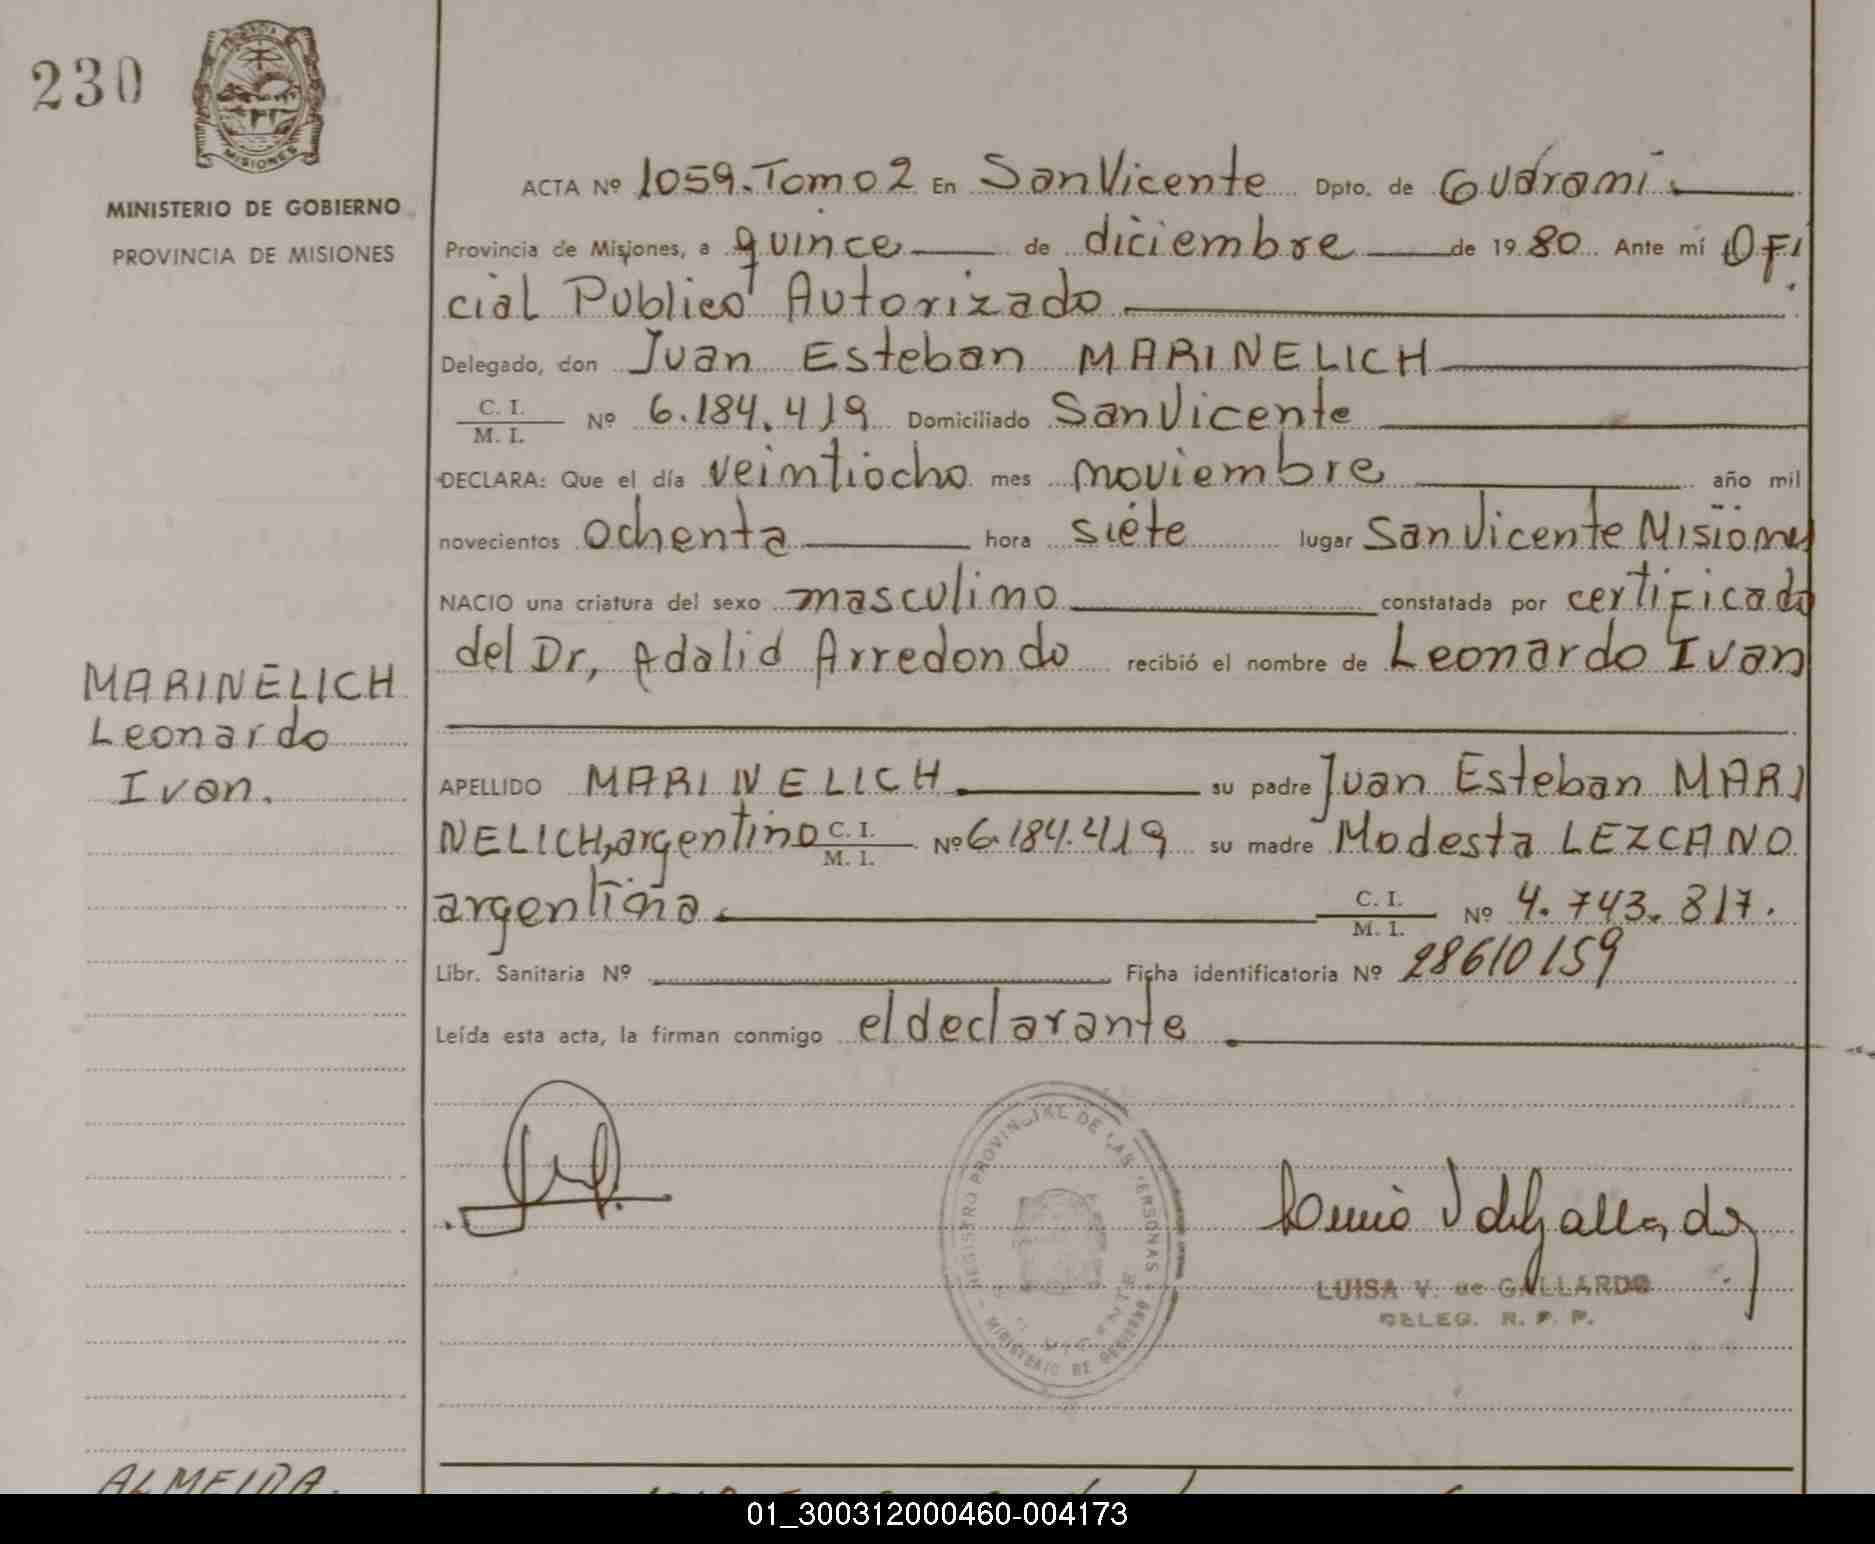 230
MISIONES
MINISTERIO DE GOBIERNO
PROVINCIA DE MISIONES
ACTA Nº 1059. Tomo 2 En San Vicente Dpto. de Guaraní
Provincia de Misiones, a quince de diciembre de 1980 Ante mí Ofi
cial Publico Autorizado
Delegado, don Juan Esteban MARINELICH
C. I. / M. I. Nº 6.184.419 Domiciliado San Vicente
DECLARA: Que el día veintiocho mes noviembre año mil
novecientos ochenta hora siete lugar San Vicente Misiones
NACIO una criatura del sexo masculino constatada por certificado
del Dr, Adalid Arredondo recibió el nombre de Leonardo Ivan
MARINELICH
Leonardo
Ivan.
APELLIDO MARINELICH su padre Juan Esteban MARI
NELICH, argentino C. I. / M. I. Nº 6.184.419 su madre Modesta LEZCANO
argentina C. I. / M. I. Nº 4.743.817.
Libr. Sanitaria Nº Ficha identificatoria Nº 28610159
Leída esta acta, la firman conmigo el declarante
REGISTRO PROVINCIAL DE LAS PERSONAS
MINISTERIO DE GOBIERNO
LUISA V. de GALLARDO
DELEG. R. P. P.
ALMEIDA
01_300312000460-004173